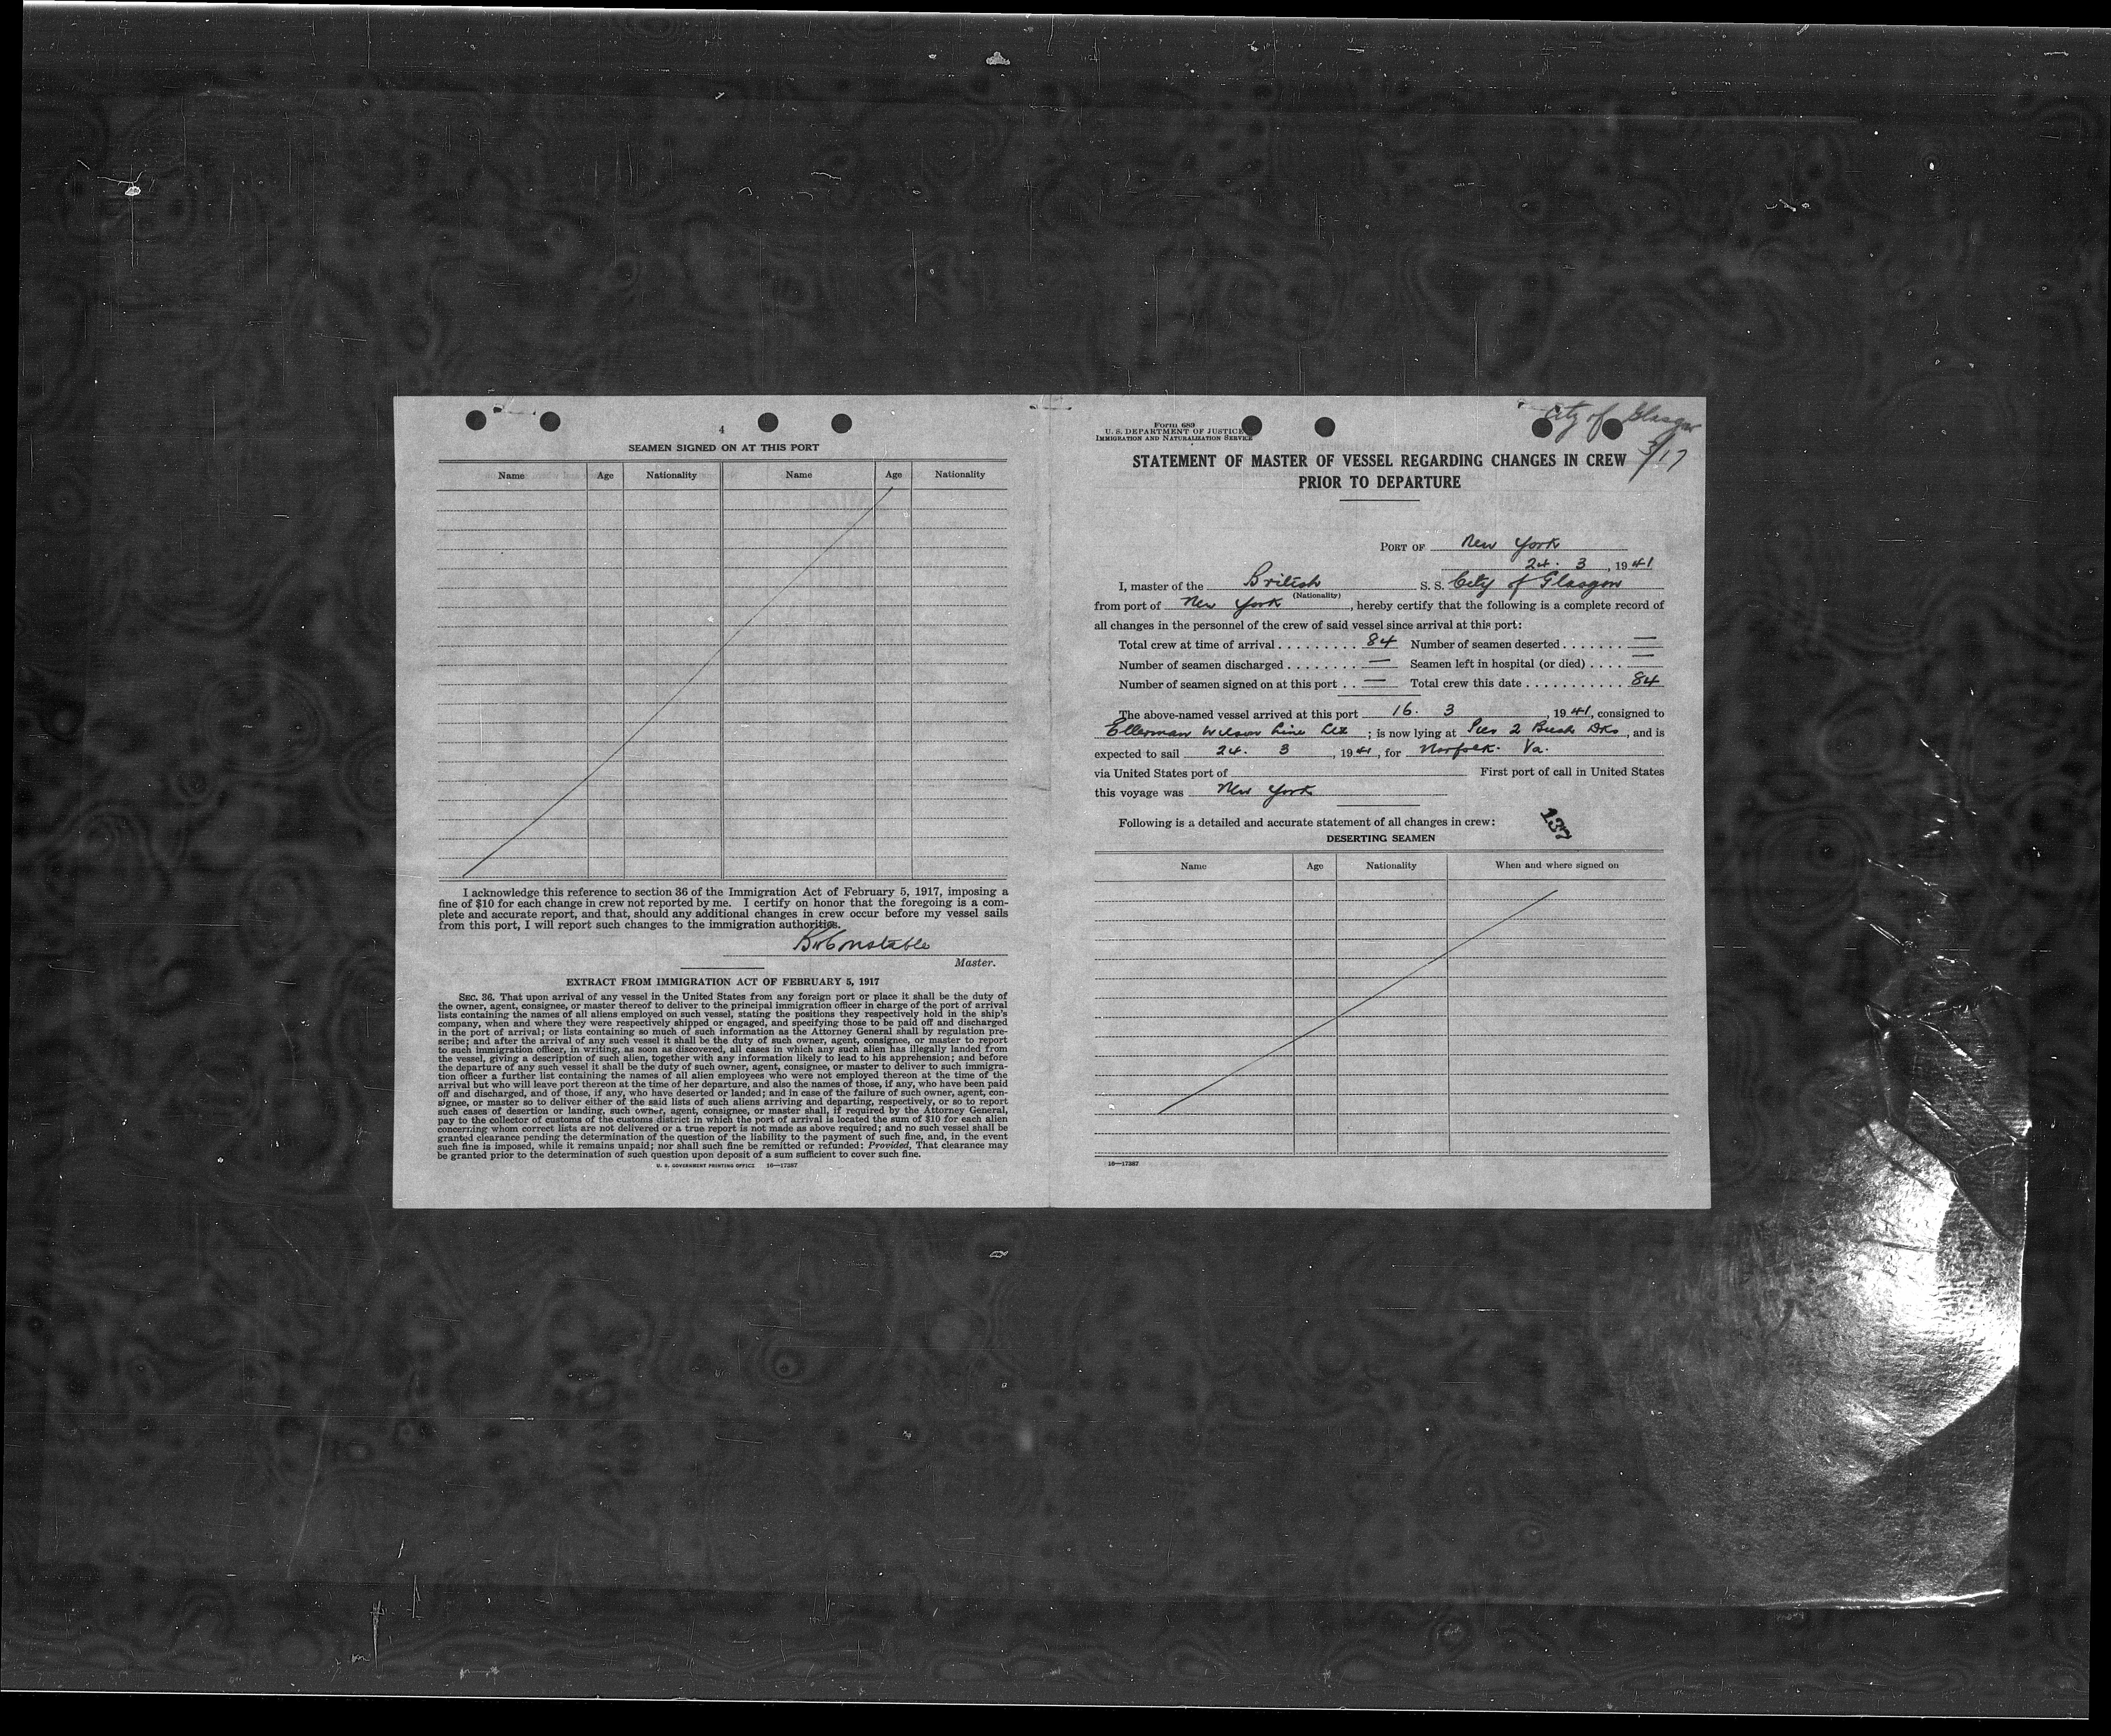 4
SEAMEN SIGNED ON AT THIS PORT
Name Age Nationality Name Age Nationality
I acknowledge this reference to section 36 of the Immigration Act of February 5, 1917, imposing a
fine of $10 for each change in crew not reported by me. I certify on honor that the foregoing is a com-
plete and accurate report, and that, should any additional changes in crew occur before my vessel sails
from this port, I will report such changes to the immigration authorities.
Constable
Master.
EXTRACT FROM IMMIGRATION ACT OF FEBRUARY 5, 1917
SEC. 36. That upon arrival of any vessel in the United States from any foreign port or place it shall be the duty of
the owner, agent, consignee, or master thereof to deliver to the principal immigration officer in charge of the port of arrival
lists containing the names of all aliens employed on such vessel, stating the positions they respectively hold in the ship's
company, when and where they were respectively shipped or engaged, and specifying those to be paid off and discharged
in the port of arrival; or lists containing so much of such information as the Attorney General shall by regulation pre-
scribe; and after the arrival of any such vessel it shall be the duty of such owner, agent, consignee, or master to report
to such immigration officer, in writing, as soon as discovered, all cases in which any such alien has illegally landed from
the vessel, giving a description of such alien, together with any information likely to lead to his apprehension; and before
the departure of any such vessel it shall be the duty of such owner, agent, consignee, or master to deliver to such immigra-
tion officer a further list containing the names of all alien employees who were not employed thereon at the time of the
arrival but who will leave port thereon at the time of her departure, and also the names of those, if any, who have been paid
off and discharged, and of those, if any, who have deserted or landed; and in case of the failure of such owner, agent, con-
signee, or master so to deliver either of the said lists of such aliens arriving and departing, respectively, or so to report
such cases of desertion or landing, such owner, agent, consignee, or master shall, if required by the Attorney General,
pay to the collector of customs of the customs district in which the port of arrival is located the sum of $10 for each alien
concerning whom correct lists are not delivered or a true report is not made as above required; and no such vessel shall be
granted clearance pending the determination of the question of the liability to the payment of such fine, and, in the event
such fine is imposed, while it remains unpaid; nor shall such fine be remitted or refunded: Provided, That clearance may
be granted prior to the determination of such question upon deposit of a sum sufficient to cover such fine.
U. S. GOVERNMENT PRINTING OFFICE 16—17387
City of Glasgow
3/17
Form 689
U. S. DEPARTMENT OF JUSTICE
IMMIGRATION AND NATURALIZATION SERVICE
STATEMENT OF MASTER OF VESSEL REGARDING CHANGES IN CREW
PRIOR TO DEPARTURE
PORT OF New York
24. 3, 1941
I, master of the British S. S. City of Glasgow
(Nationality)
from port of New York, hereby certify that the following is a complete record of
all changes in the personnel of the crew of said vessel since arrival at this port:
Total crew at time of arrival . . . . . . . . . 84 Number of seamen deserted . . . . . . . —
Number of seamen discharged . . . . . . . . — Seamen left in hospital (or died) . . . . —
Number of seamen signed on at this port . . — Total crew this date . . . . . . . . . . . 84
The above-named vessel arrived at this port 16. 3, 1941, consigned to
Ellerman Wilson Line; is now lying at Pier 2 Bush Dks, and is
expected to sail 24. 3, 1941, for Norfolk. Va.
via United States port of First port of call in United States
this voyage was New York
Following is a detailed and accurate statement of all changes in crew:
137
DESERTING SEAMEN
Name Age Nationality When and where signed on
16—17387